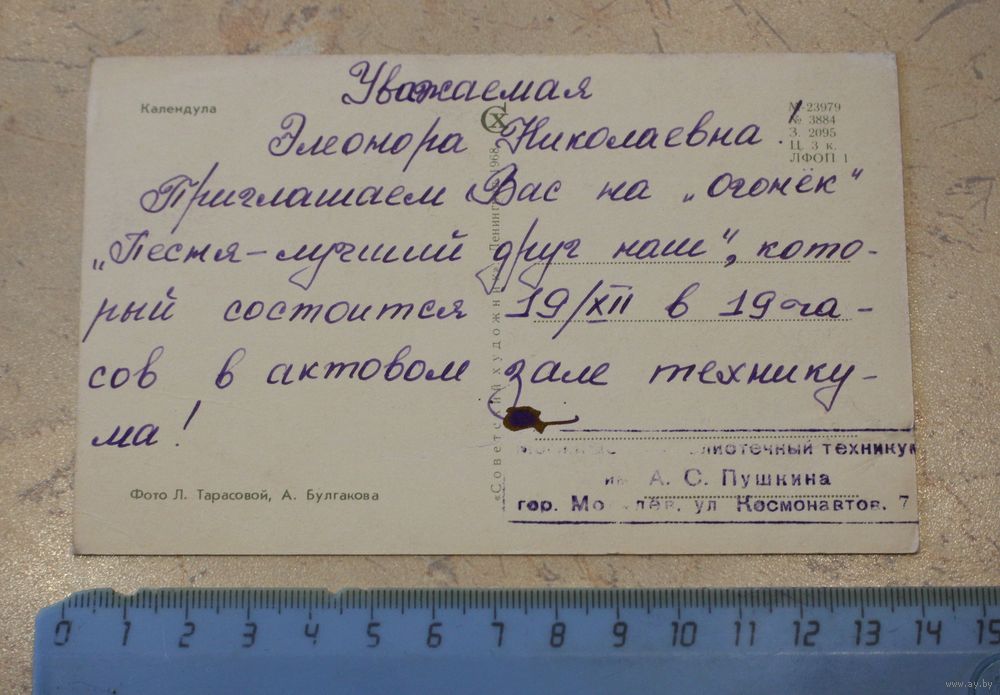 Календула
Уважаемая
Элеонора Николаевна!
М-23979
№ 3884
З. 2095
Ц. 3 к.
ЛФОП 1
Приглашаем Вас на „огонёк“
„Песня-лучший друг наш“, кото-
рый состоится 19/XII в 19 ча-
сов в актовом зале технику-
ма!
«Советский художник» Ленинград 1968
Фото Л. Тарасовой, А. Булгакова
лиотечный техникум
им А. С. Пушкина
гор. Мо лёв, ул Космонавтов, 7
0 1 2 3 4 5 6 7 8 9 10 11 12 13 14 15
www.ay.by